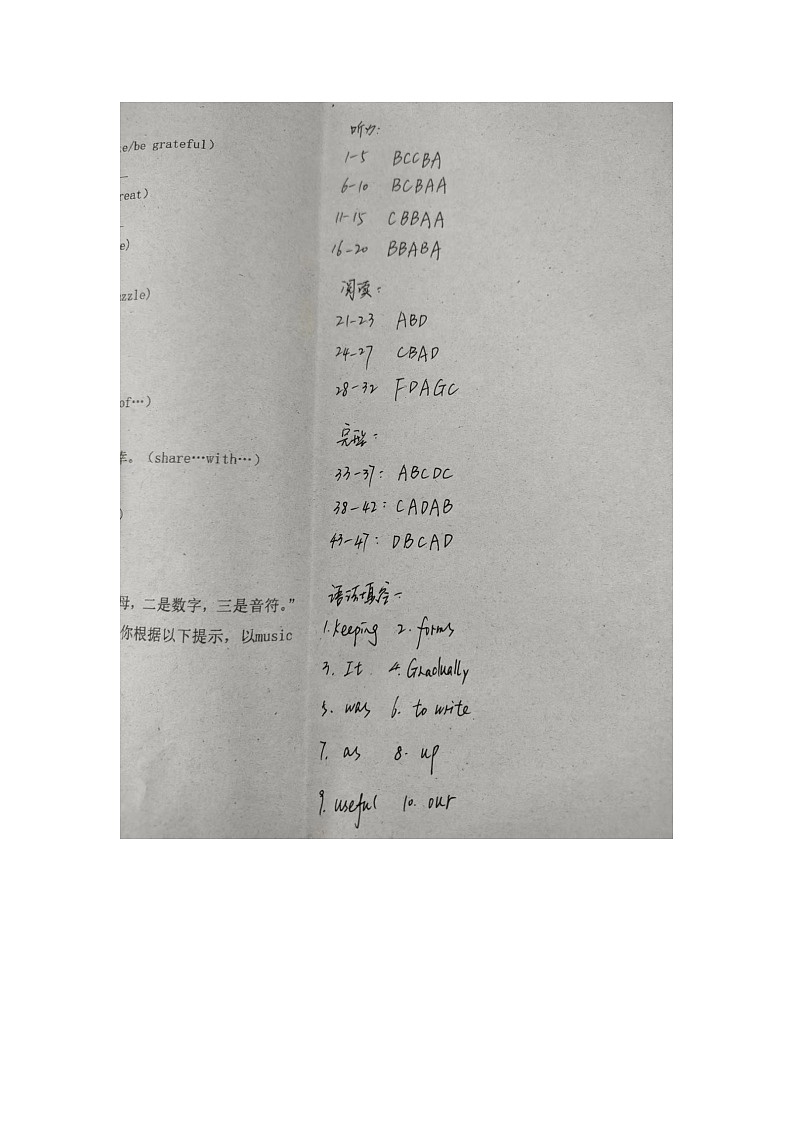 e/be grateful)
reat)
e)
zzle)
of…)
幸。(share…with…)
)
母，二是数字，三是音符。”
你根据以下提示，以music
听力:
1-5 BCCBA
6-10 BCBAA
11-15 CBBAA
16-20 BBABA
阅读:
21-23 ABD
24-27 CBAD
28-32 FDAGC
完型:
33-37: ABCDC
38-42: CADAB
43-47: DBCAD
语法填空:
1. keeping 2. forms
3. It 4. Gradually
5. was 6. to write
7. as 8. up
9. useful 10. our